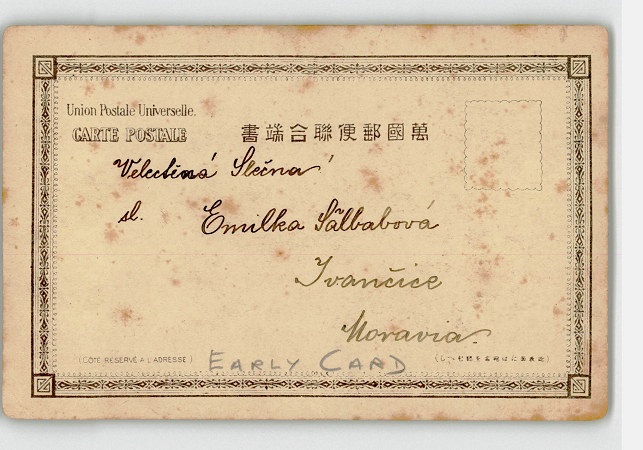 Union Postale Universelle.
CARTE POSTALE
書端合聯便郵國萬
Velectěná Slečna
sl. Emilka Šálbabová
Ivančice
Moravia.
(COTÉ RÉSERVÉ A L'ADRESSE)
EARLY CARD